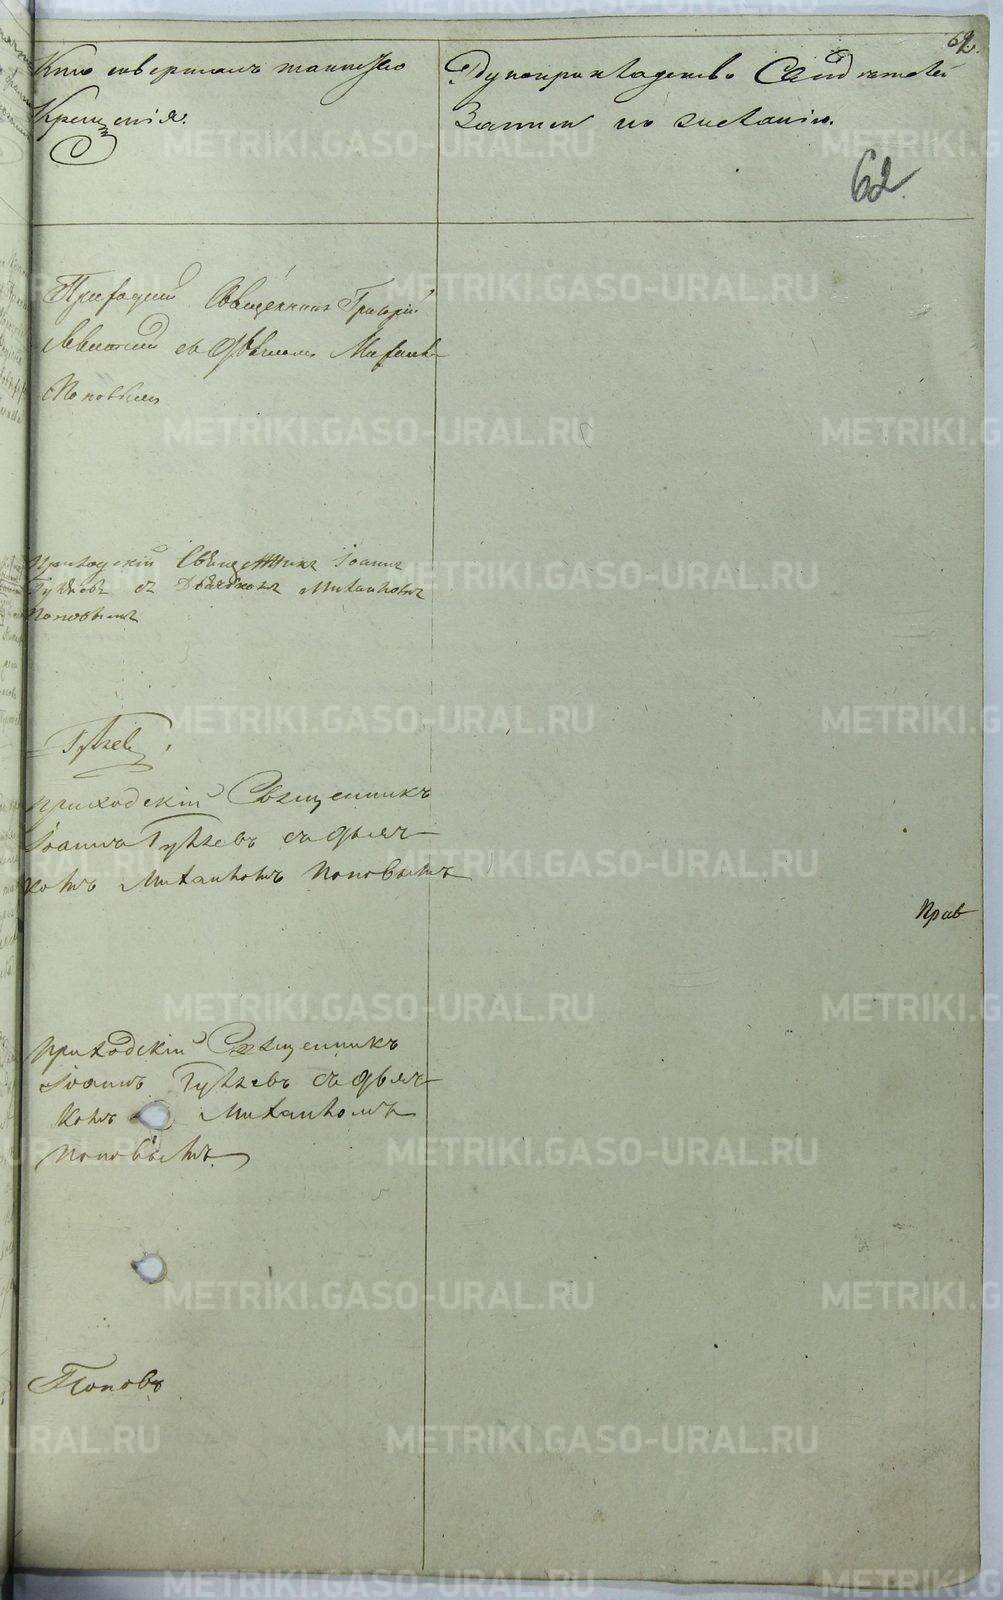 62.
Кто совершалъ таинство
Крещенія.
Рукоприкладство Свидѣтелей
Записи по желанію.
62.
Приходский Священникъ Григорій
съ Дьячкомъ Михаиломъ
Поповымъ
Приходскій Священникъ Іоаннъ
Гуляевъ съ Дьячкомъ Михаиломъ
Поповымъ
Гуляевъ
приходскій Священникъ
Іоаннъ Гуляевъ съ дьяч
комъ Михаиломъ Поповымъ
Прав
приходскій Священникъ
Іоаннъ Гуляевъ съ дьяч
комъ Михаиломъ
Поповымъ
Поповъ
METRIKI.GASO-URAL.RU